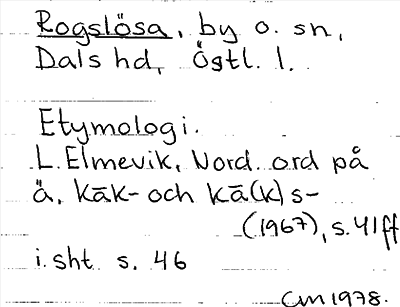 Rogslösa, by o. sn,
Dals hd, Östl. l.
Etymologi.
L. Elmevik, Nord. ord på
ä. kāk- och kā(k)s-
(1967), s. 41 ff
i. sht s. 46
CM 1978.